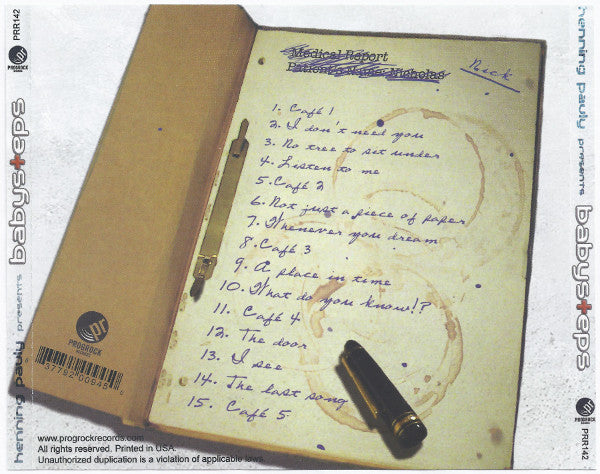 PRR142
PROGROCK
RECORDS
henning pauly presents
babysteps
Medical Report
Patient's Name: Nicholas
Nick
1. Café 1
2. I don't need you
3. No tree to sit under
4. Listen to me
5. Café 2
6. Not just a piece of paper
7. Whenever you dream
8. Café 3
9. A place in time
10. What do you know!?
11. Café 4
12. The door
13. I see
14. The last song
15. Café 5
PROGROCK
RECORDS
37792 00948
www.progrockrecords.com
All rights reserved. Printed in USA.
Unauthorized duplication is a violation of applicable laws.
henning pauly presents
babysteps
PROGROCK
RECORDS
PRR142